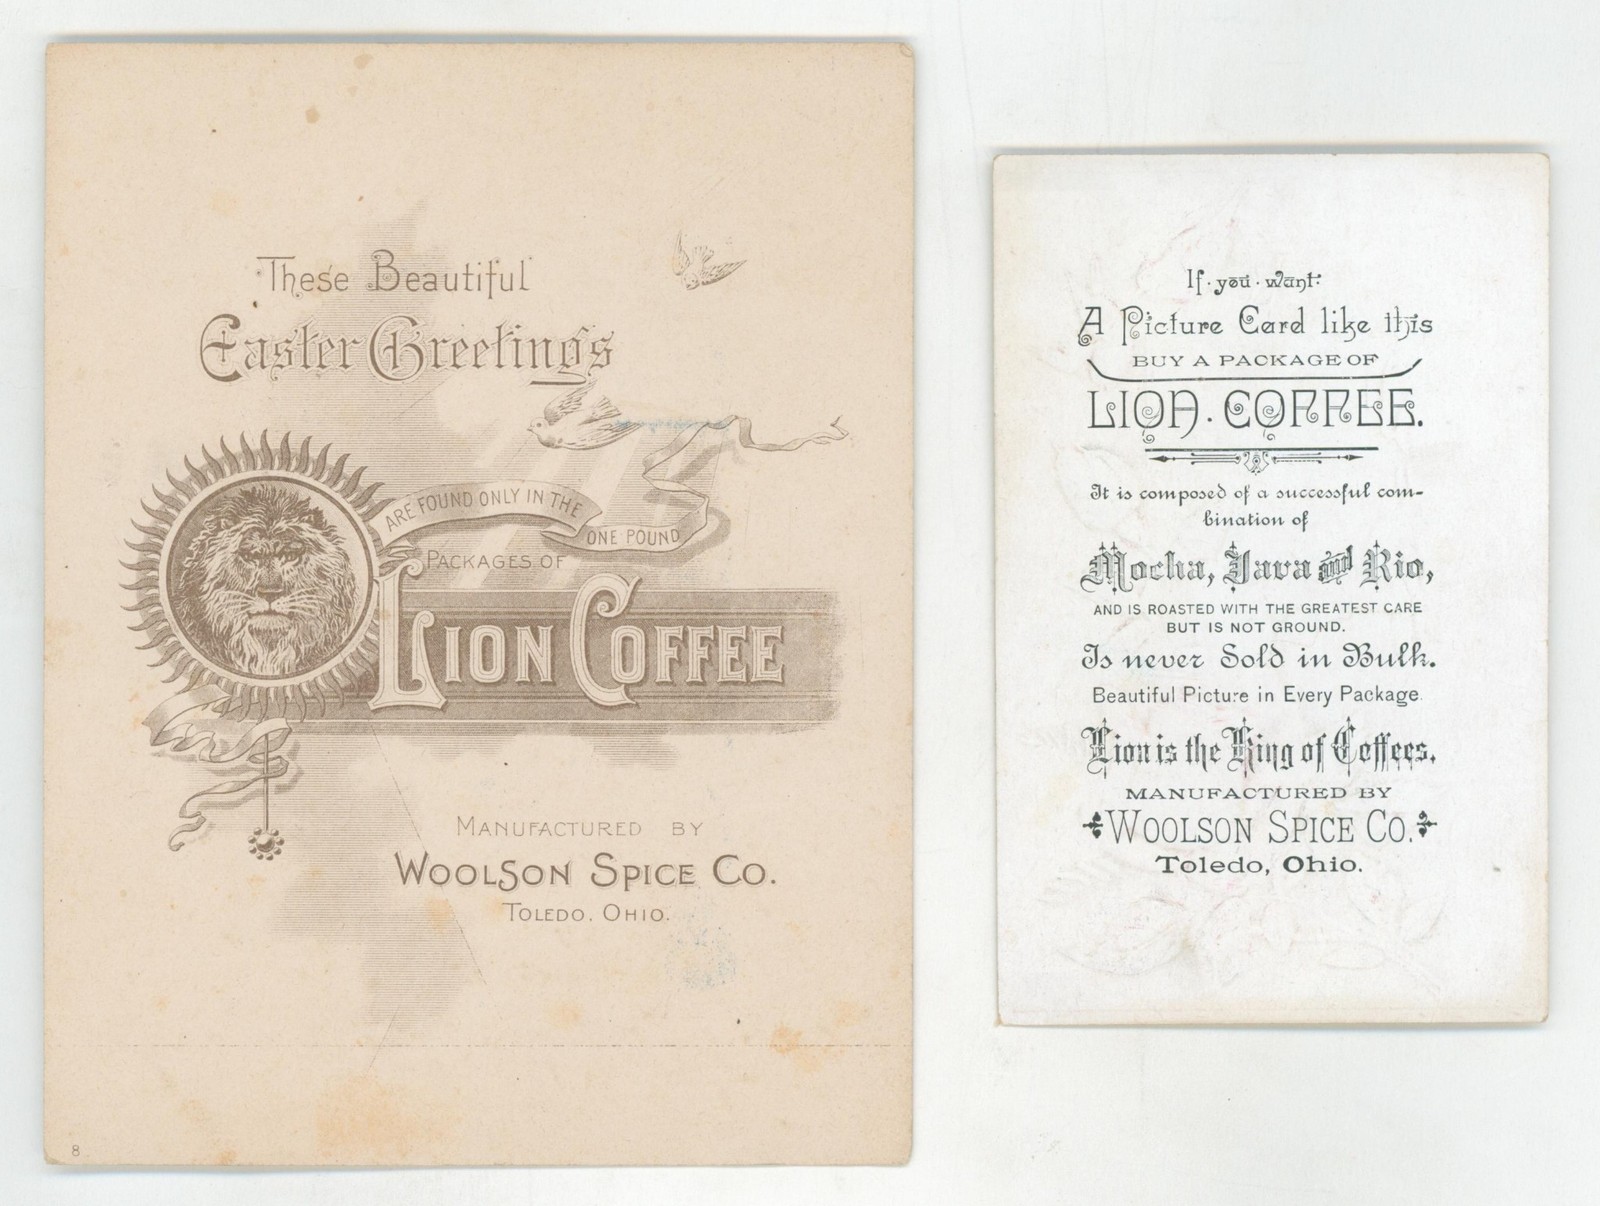 These Beautiful
Easter Greetings
ARE FOUND ONLY IN THE
ONE POUND
PACKAGES OF
LION COFFEE
MANUFACTURED BY
WOOLSON SPICE CO.
TOLEDO. OHIO.
8
If you want
A Picture Card like this
BUY A PACKAGE OF
LION COFFEE.
It is composed of a successful com-
bination of
Mocha, Java and Rio,
AND IS ROASTED WITH THE GREATEST CARE
BUT IS NOT GROUND.
Is never Sold in Bulk.
Beautiful Picture in Every Package.
Lion is the King of Coffees.
MANUFACTURED BY
WOOLSON SPICE CO.
Toledo, Ohio.